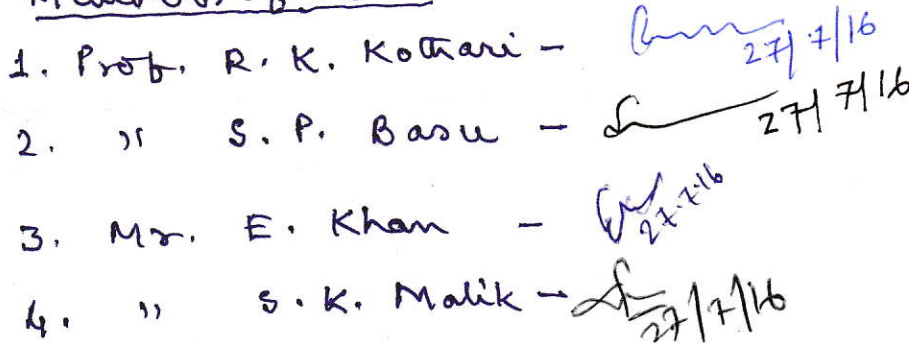 1. Prof. R. K. Kothari - 27/7/16
2. " S. P. Basu - 27/7/16
3. Mr. E. Khan - 27.7.16
4. " S. K. Malik - 27/7/16